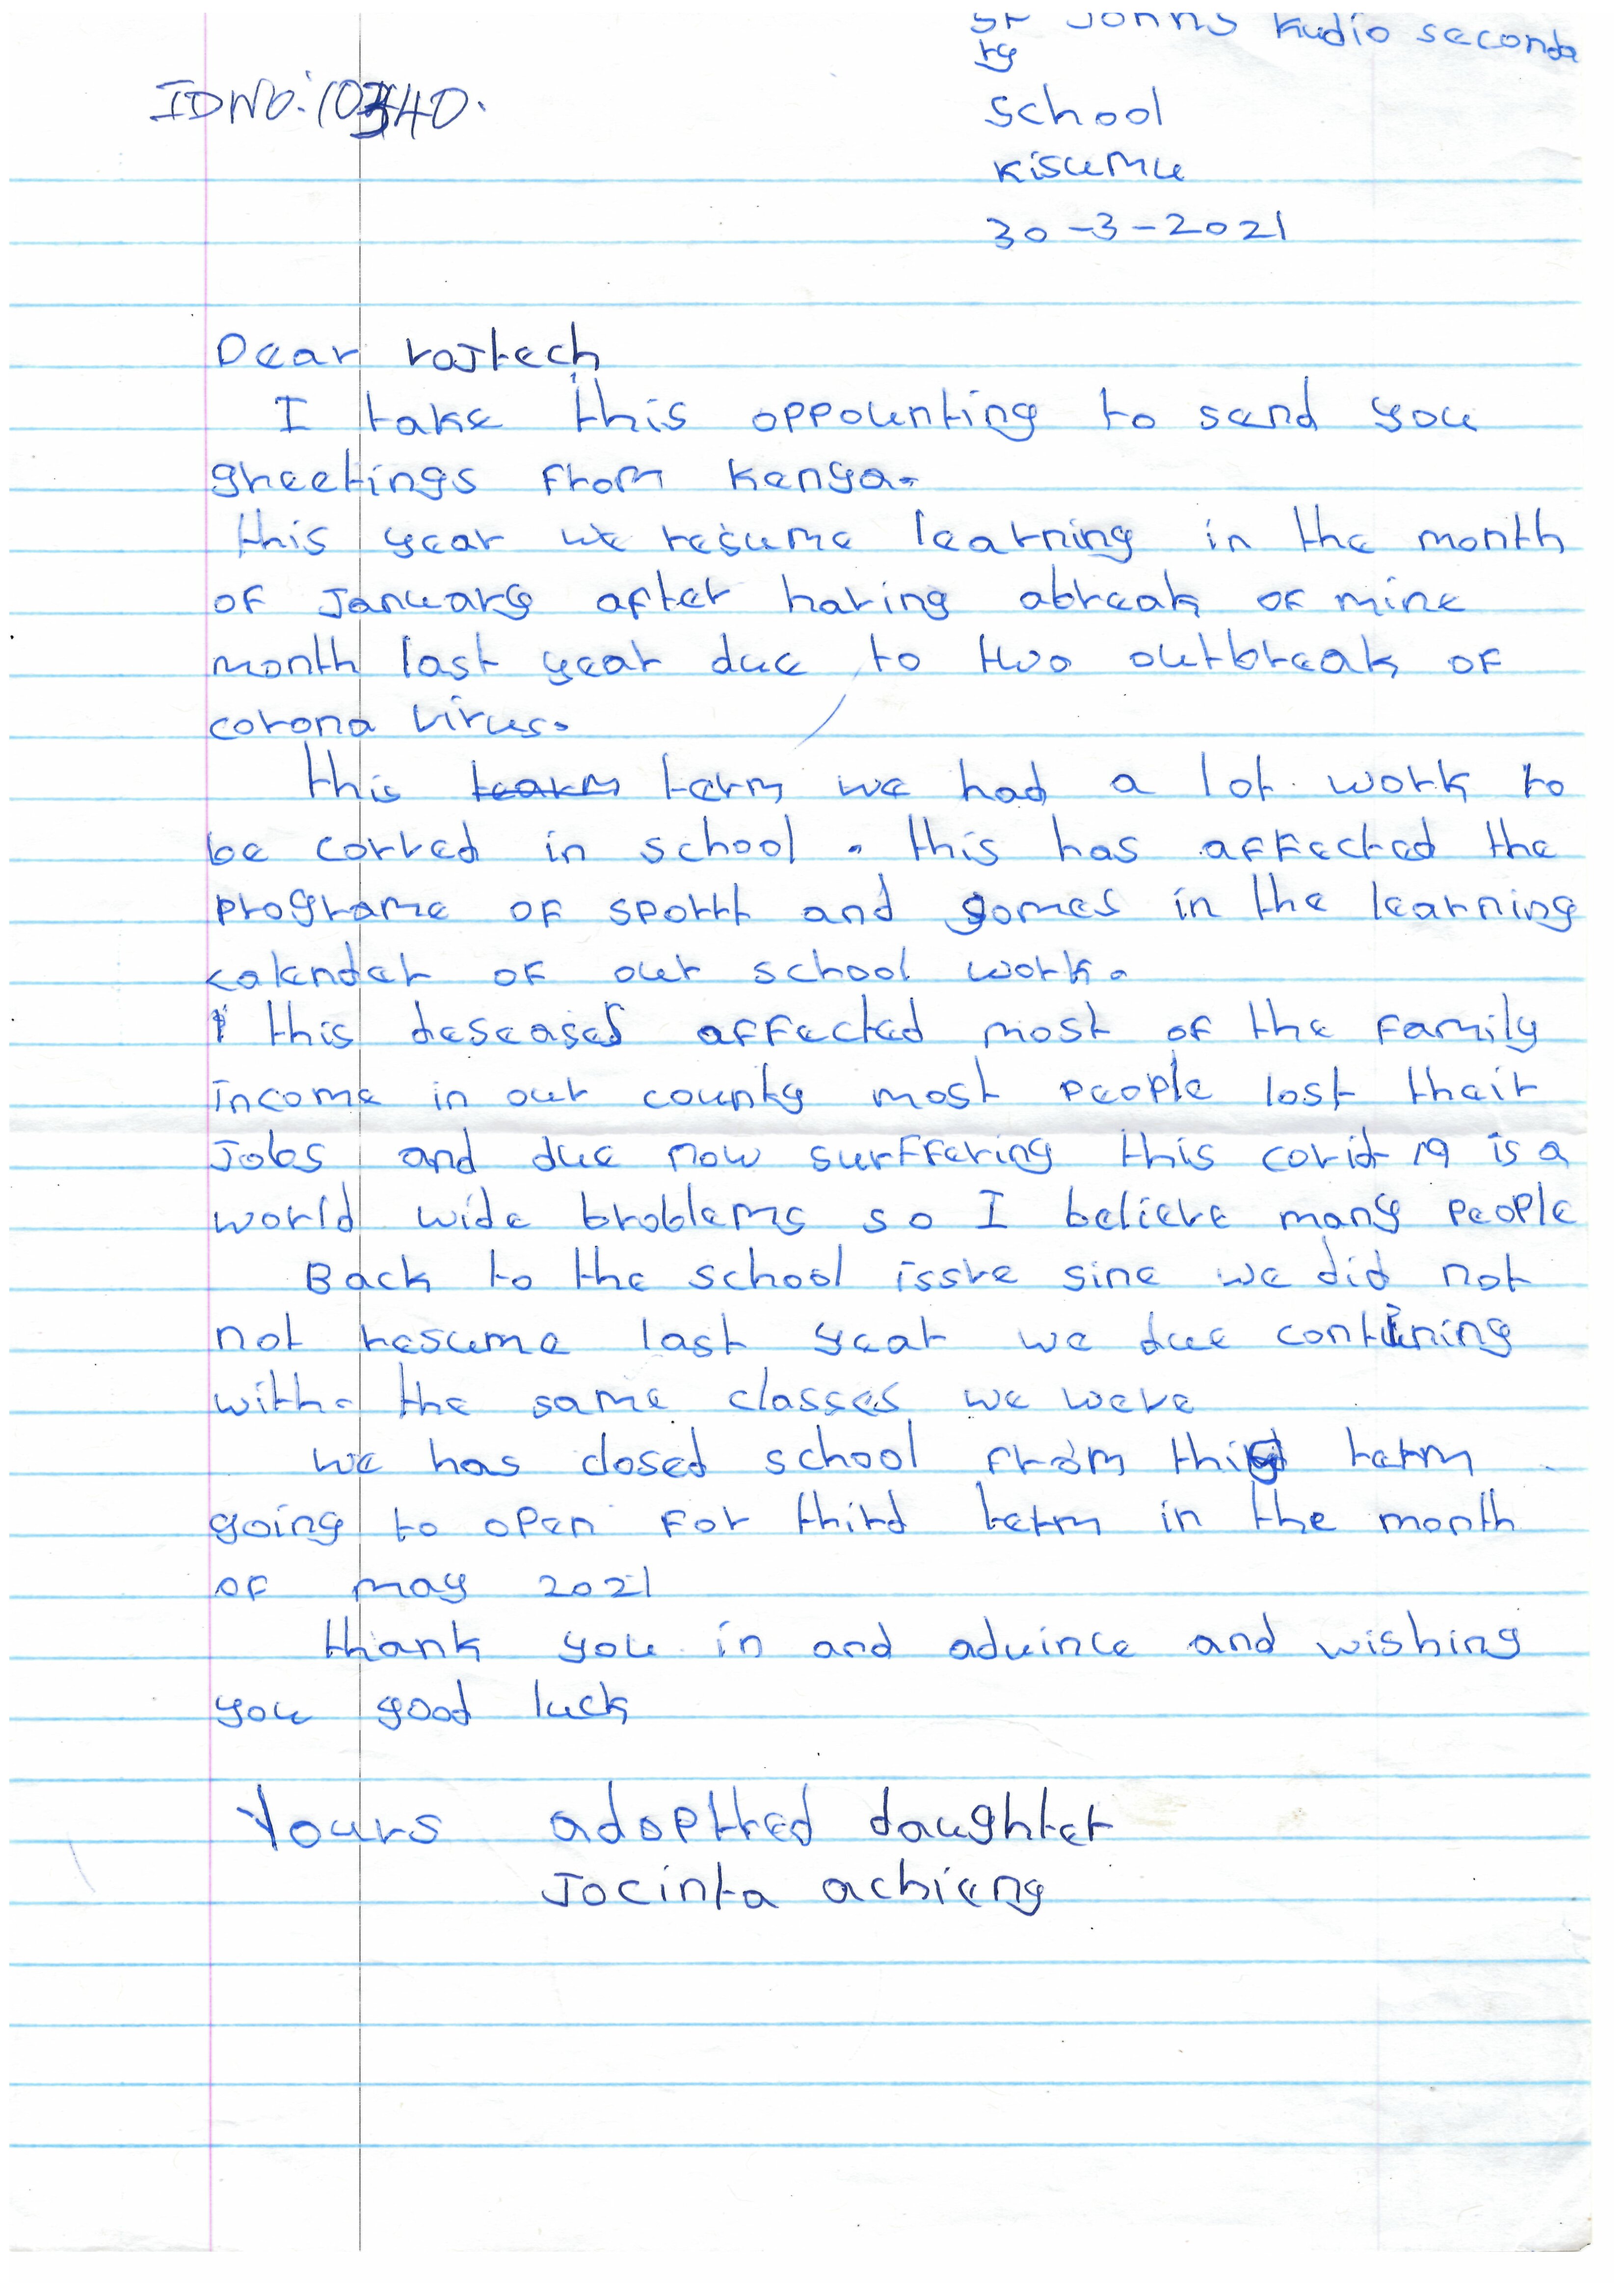 St Johns Kudio seconda
ry
IDNO: 10340.
school
Kisumu
30-3-2021
Dear vojtech
I take this oppounting to send you
greetings from Kenya.
this year we resume learning in the month
of January after having abreak of mine
month last year due to two outbreak of
corona virus.
this term we had a lot work to
be corved in school. this has affected the
programe of sportt and games in the learning
calender of our school work.
this deseases affected most of the family
income in our county most people lost their
Jobs and due now surffering this covid 19 is a
world wide broblems so I believe many people
Back to the school issve sine we did not
not resume last year we due contining
with. the same classes we were
we has closed school from this term
going to open for third term in the month
of may 2021
thank you in and advince and wishing
you good luck
Yours adoptted daughter
Jocinta achieng